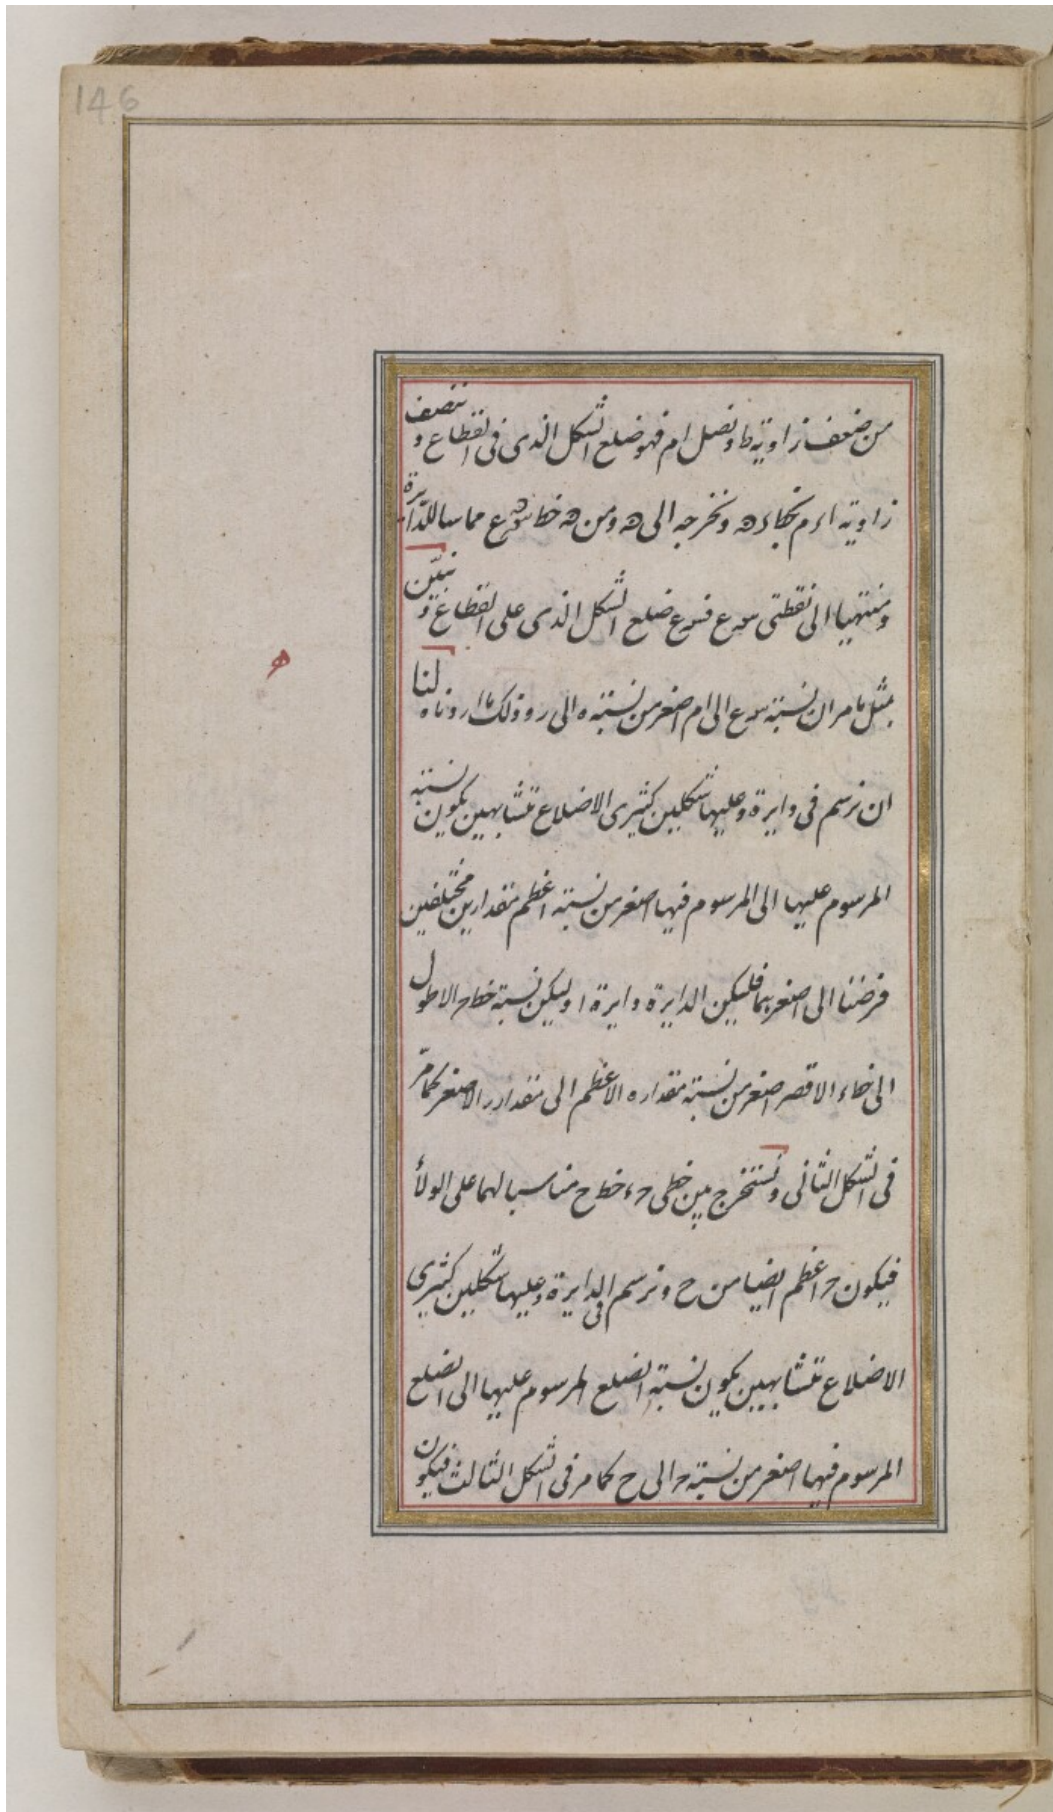 146
من ضعف زاوية ط ونصل ام فهو ضلع الشكل الذى فى القطاع وننصف
زاوية اءم بخط ءه ونخرجه الى ه ومن ه خط سهع مماسا للدائرة
ومنتهيا الى نقطتى س ع فسع ضلع الشكل الذى على القطاع ونبيّن
بمثل ما مر ان نسبة سع الى ام اصغر من نسبة ه الى ر وذلك ما اردناه لنا
ه
ان نرسم فى دايرة وعليها شكلين كثيرى الاضلاع متشابهين يكون نسبة
المرسوم عليها الى المرسوم فيها اصغر من نسبة اعظم مقدارين مختلفين
فرضنا الى اصغرهما فليكن الدايرة دايرة ا وليكن نسبة خط ح الاطول
الى خط ء الاقصر اصغر من نسبة مقدار ه الاعظم الى مقدار ر الاصغر كما مرّ
فى الشكل الثانى ونستخرج بين خطى ح ء خط ح مناسبا لهما على الولاء
فيكون ح اعظم ايضا من ح ونرسم فى الدايرة وعليها شكلين كثيرى
الاضلاع متشابهين يكون نسبة الضلع المرسوم عليها الى الضلع
المرسوم فيها اصغر من نسبة ح الى ح كما مر فى الشكل الثالث فيكون